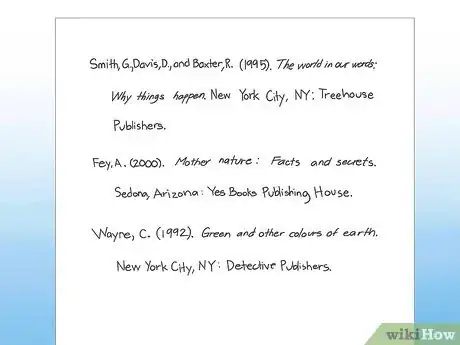 Smith,G.,Davis,D.,and Baxter,R. (1995). The world in our words:
Why things happen. New York City, NY: Treehouse
Publishers.
Fey, A. (2000). Mother nature: Facts and secrets.
Sedona, Arizona: Yes Books Publishing House.
Wayne, C. (1992). Green and other colours of earth.
New York City, NY: Detective Publishers.
wikiHow